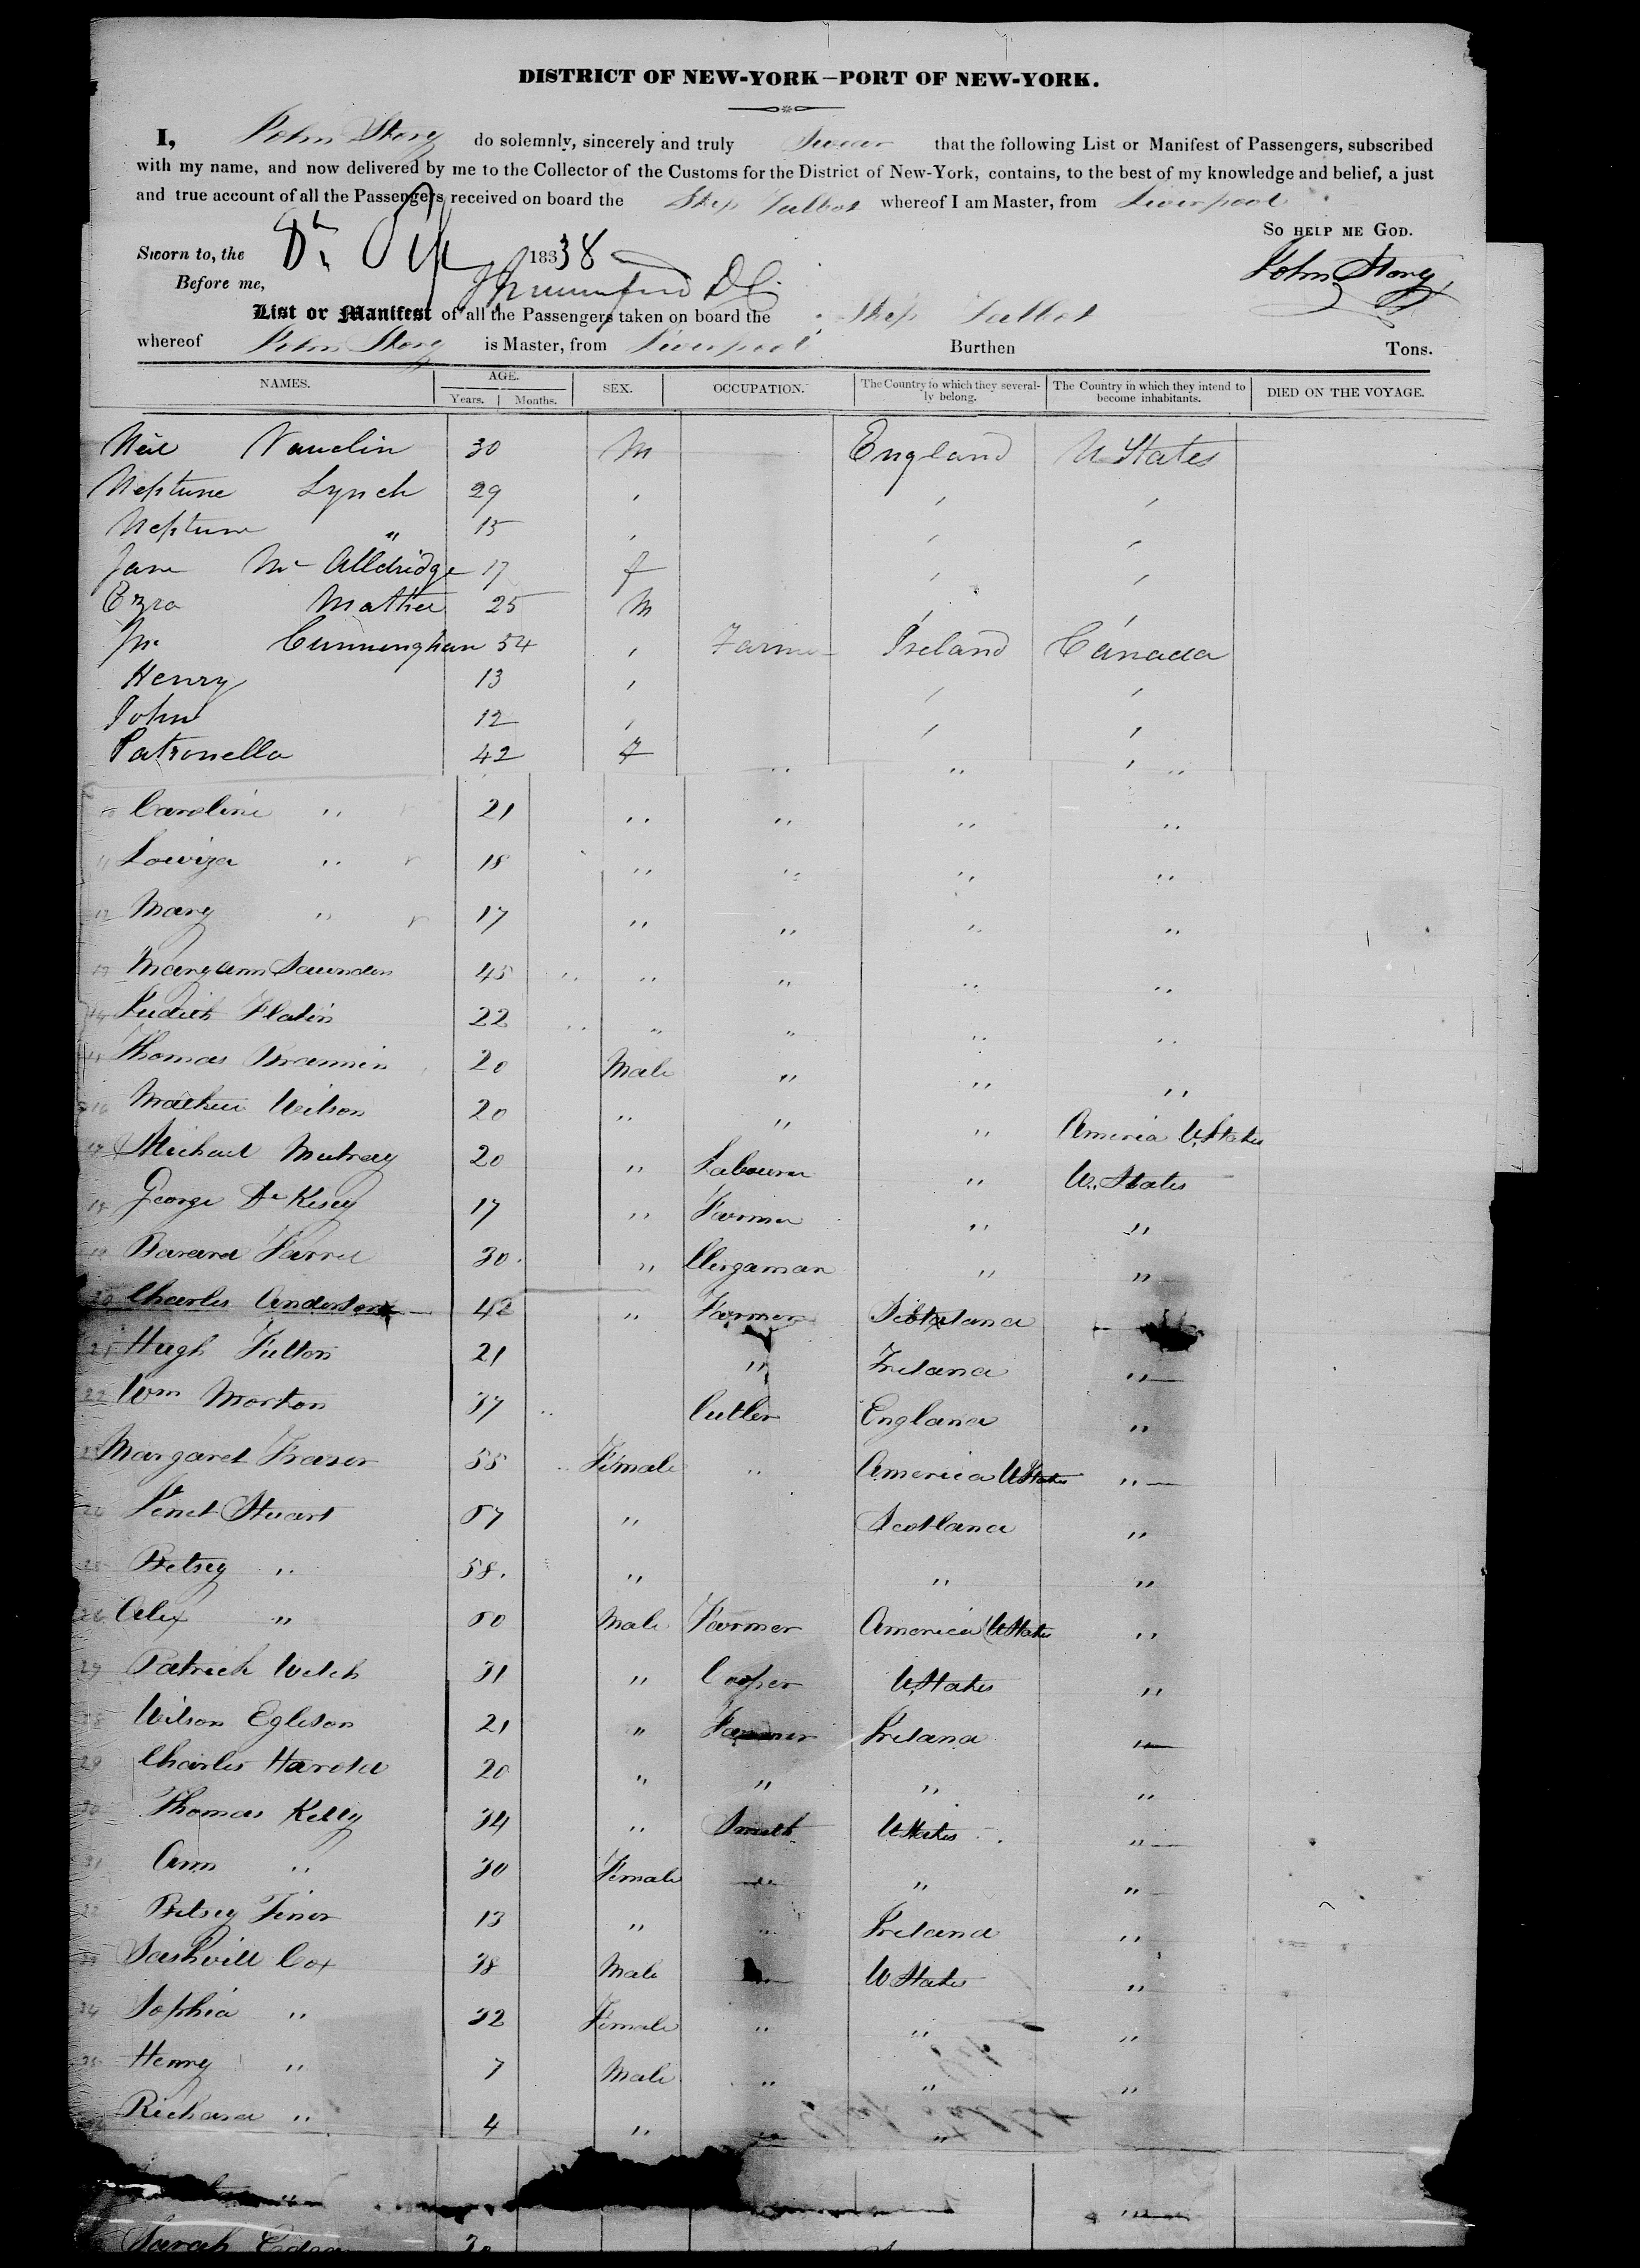 DISTRICT OF NEW-YORK—PORT OF NEW-YORK.
I, John Story do solemnly, sincerely and truly Swear that the following List or Manifest of Passengers, subscribed
with my name, and now delivered by me to the Collector of the Customs for the District of New-York, contains, to the best of my knowledge and belief, a just
and true account of all the Passengers received on board the Ship Talbot whereof I am Master, from Liverpool
SO HELP ME GOD.
Sworn to, the 8th 18338
John Story
Before me,
List or Manifest of all the Passengers taken on board the Ship Talbot
whereof John Story is Master, from Liverpool Burthen Tons.
NAMES. AGE. SEX. OCCUPATION. The Country to which they severally belong. The Country in which they intend to become inhabitants. DIED ON THE VOYAGE.
Years. Months.
30 M England U States
Neptune Lynch 29 " " "
Neptune " 15 " " "
Jane Mc Alldridge 17 f " "
Ezra Mather 25 M " "
Cunningham 54 " Farmer Ireland Canada
Henry 13 " " "
John 12 " " "
Patronella 42 F " " "
10 Caroline " 21 " " " "
11 Lowiza " 18 " " " "
12 Mary " 17 " " " "
13 Maryann Saunders 45 " " " " "
14 Judith Flatin 22 " " " " "
15 Thomas Brannin 20 Male " " "
16 Mathew Wilson 20 " " " America U States
17 Michael 20 " Labourer " U. States
18 George 17 " Farmer " "
19 30 " Clergaman " "
20 Charles Anderson 42 " Farmer Scotland
21 Hugh Fulton 21 " Ireland "
22 Wm Morton 37 " Cutler England "
23 Margaret Frazer 55 " Female " America U States "
24 Jenet Stuart 57 " Scotland "
25 Betsey " 58. " " "
26 Alex " 50 Male Farmer America U States "
27 Patrick Welch 31 " Cooper U States "
28 Wilson Egleson 21 " Farmer Ireland "
29 Charles Harold 20 " " " "
30 Thomas Kelly 34 " Smith U States "
31 Ann " 30 Female " " "
32 Betsey 13 " " Ireland "
33 Cox 38 Male U States "
34 Sophia " 32 Female " " "
35 Henry " 7 Male " " "
36 Richard " 4 " " "
Sarah